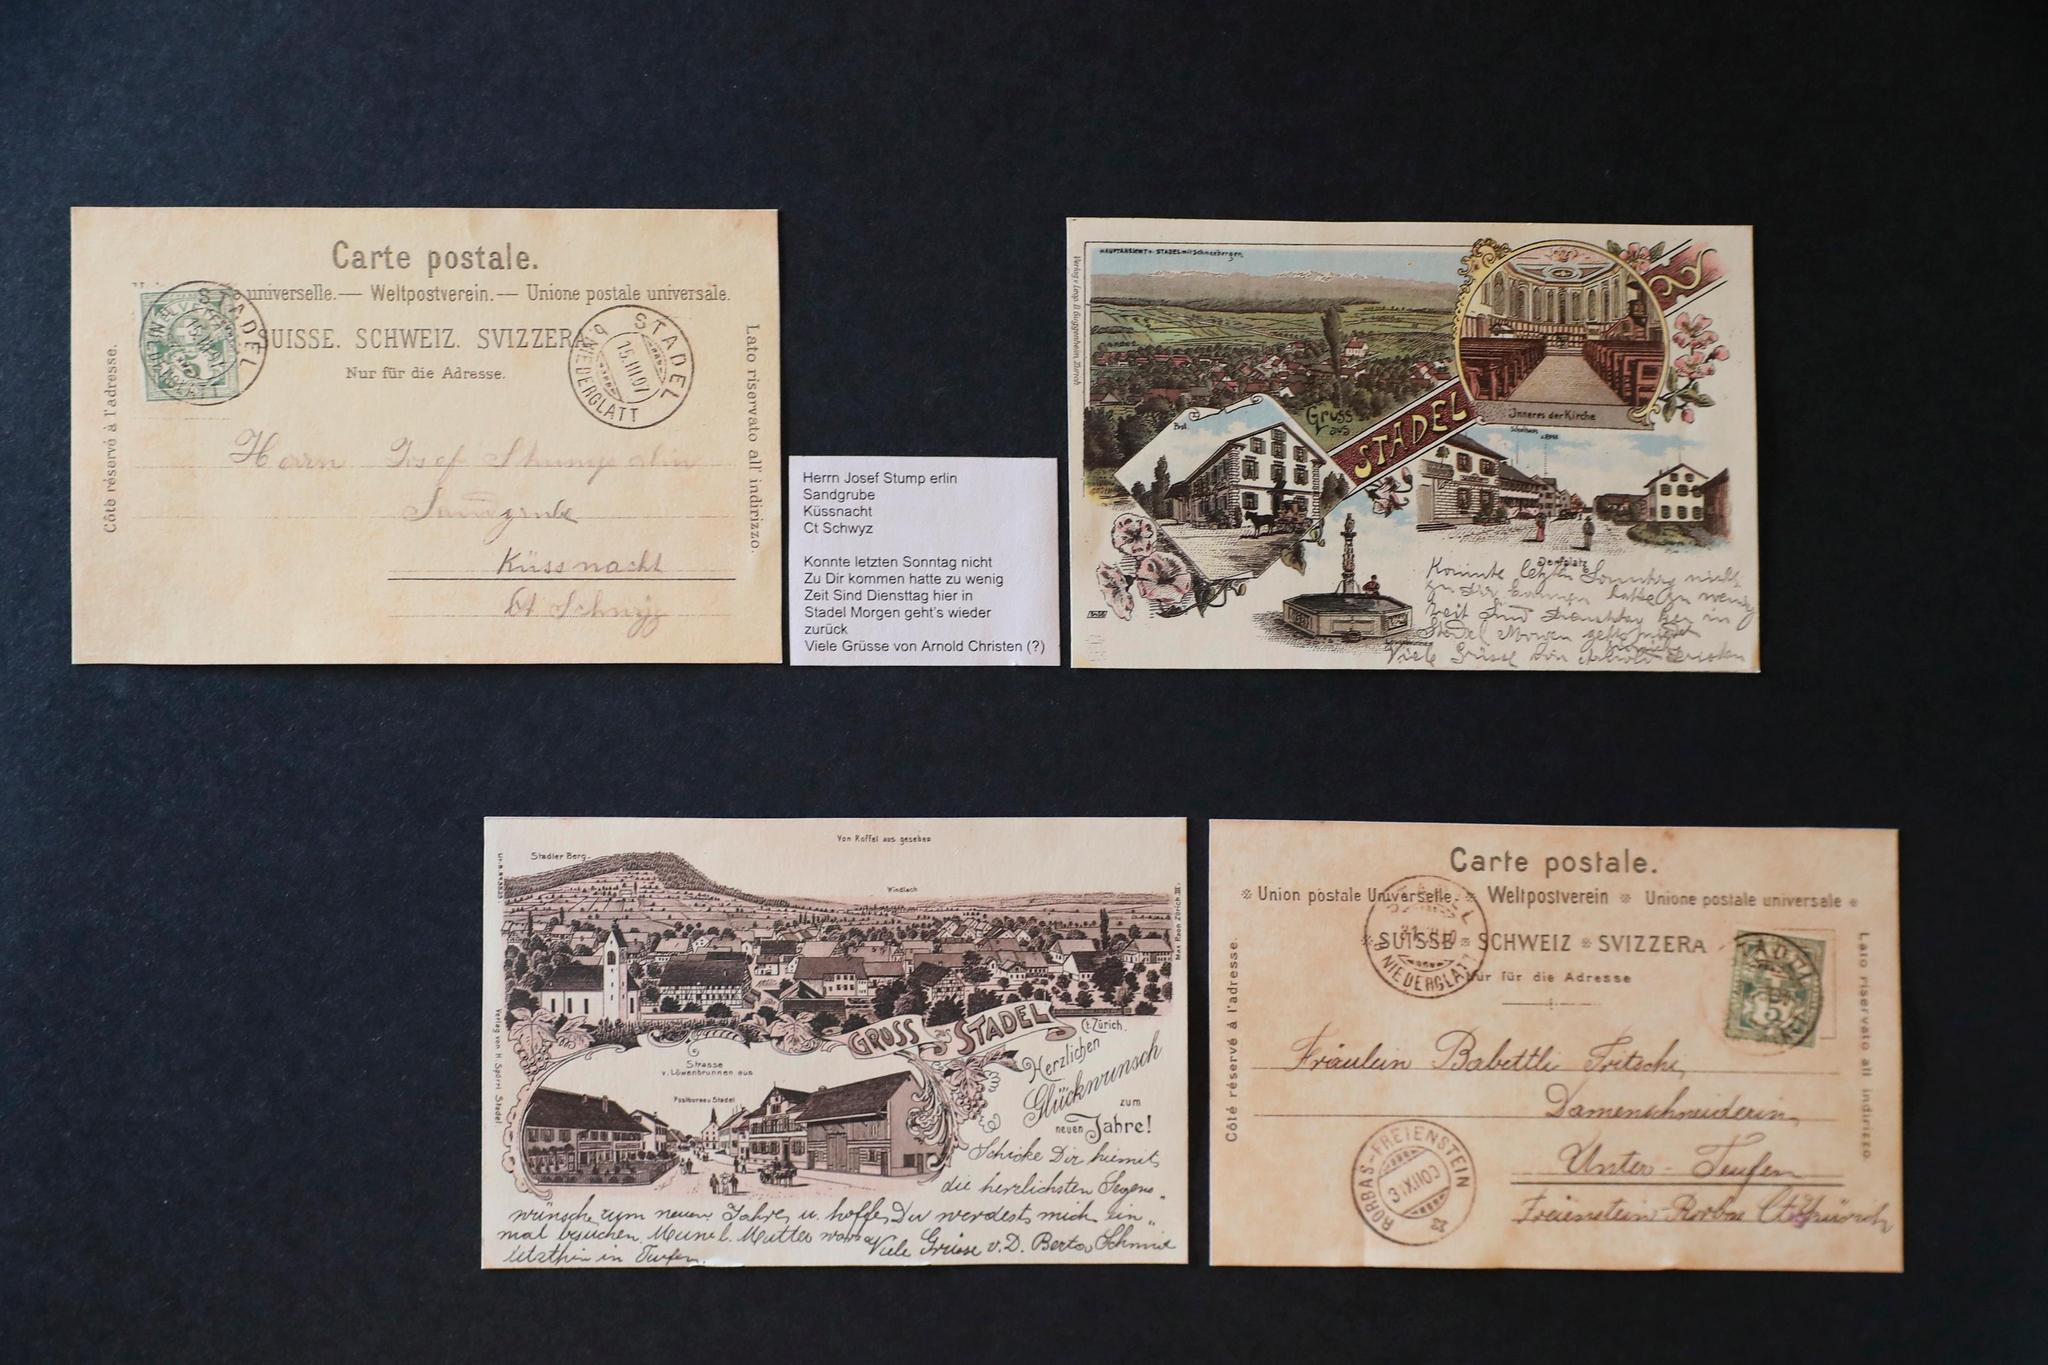 Carte postale.
e universelle.— Weltpostverein.— Unione postale universale.
SUISSE. SCHWEIZ. SVIZZERA
Nur für die Adresse.
Côté réservé à l'adresse.
Lato riservato all'indirizzo.
STADEL
STADEL
b. NIEDERGLATT
15.III.07
Herrn Josef
Sandgrube
Küssnacht
Ct Schwyz
Herrn Josef Stump erlin
Sandgrube
Küssnacht
Ct Schwyz
Konnte letzten Sonntag nicht
Zu Dir kommen hatte zu wenig
Zeit Sind Diensttag hier in
Stadel Morgen geht's wieder
zurück
Viele Grüsse von Arnold Christen (?)
HAUPTANSICHT v. STADEL mit Schneebergen
Verlag v. Leop. D. Guggenheim, Zürich
Inneres der Kirche
Post
Gruss
aus
STADEL
Schulhaus
Dorfplatz
Konnte letzten Sonntag nicht
zu Dir kommen hatte zu wenig
Zeit Sind Diensttag hier in
Stadel Morgen geht's wieder
zurück
Viele Grüsse von Arnold Christen
Von Raffel aus gesehen
Stadler Berg.
Windlach
Max Rson Zürich III.
Verlag von H. Spörri Stadel
GRUSS aus STADEL
Ct. Zürich.
Strasse
v. Löwenbrunnen aus
Postbureau Stadel
Herzlichen
Glückwunsch
zum
neuen Jahre!
Schicke Dir hiemit
die herzlichsten Segens„
wünsche zum neuen Jahre u. hoffe, Du werdest mich ein„
mal besuchen. Meine l. Mutter war
letzthin in Teufen.
Viele Grüsse v. D. Berta Schmid
Carte postale.
Union postale Universelle. Weltpostverein Unione postale universale
SUISSE SCHWEIZ SVIZZERA
Nur für die Adresse
Côté réservé à l'adresse.
Lato riservato all indirizzo.
NIEDERGLATT
STADEL
Fräulein Babettli Fritschi,
Damenschneiderin,
Unter-Teufen
Freienstein-Rorbas Ct. Zürich
RORBAS-FREIENSTEIN